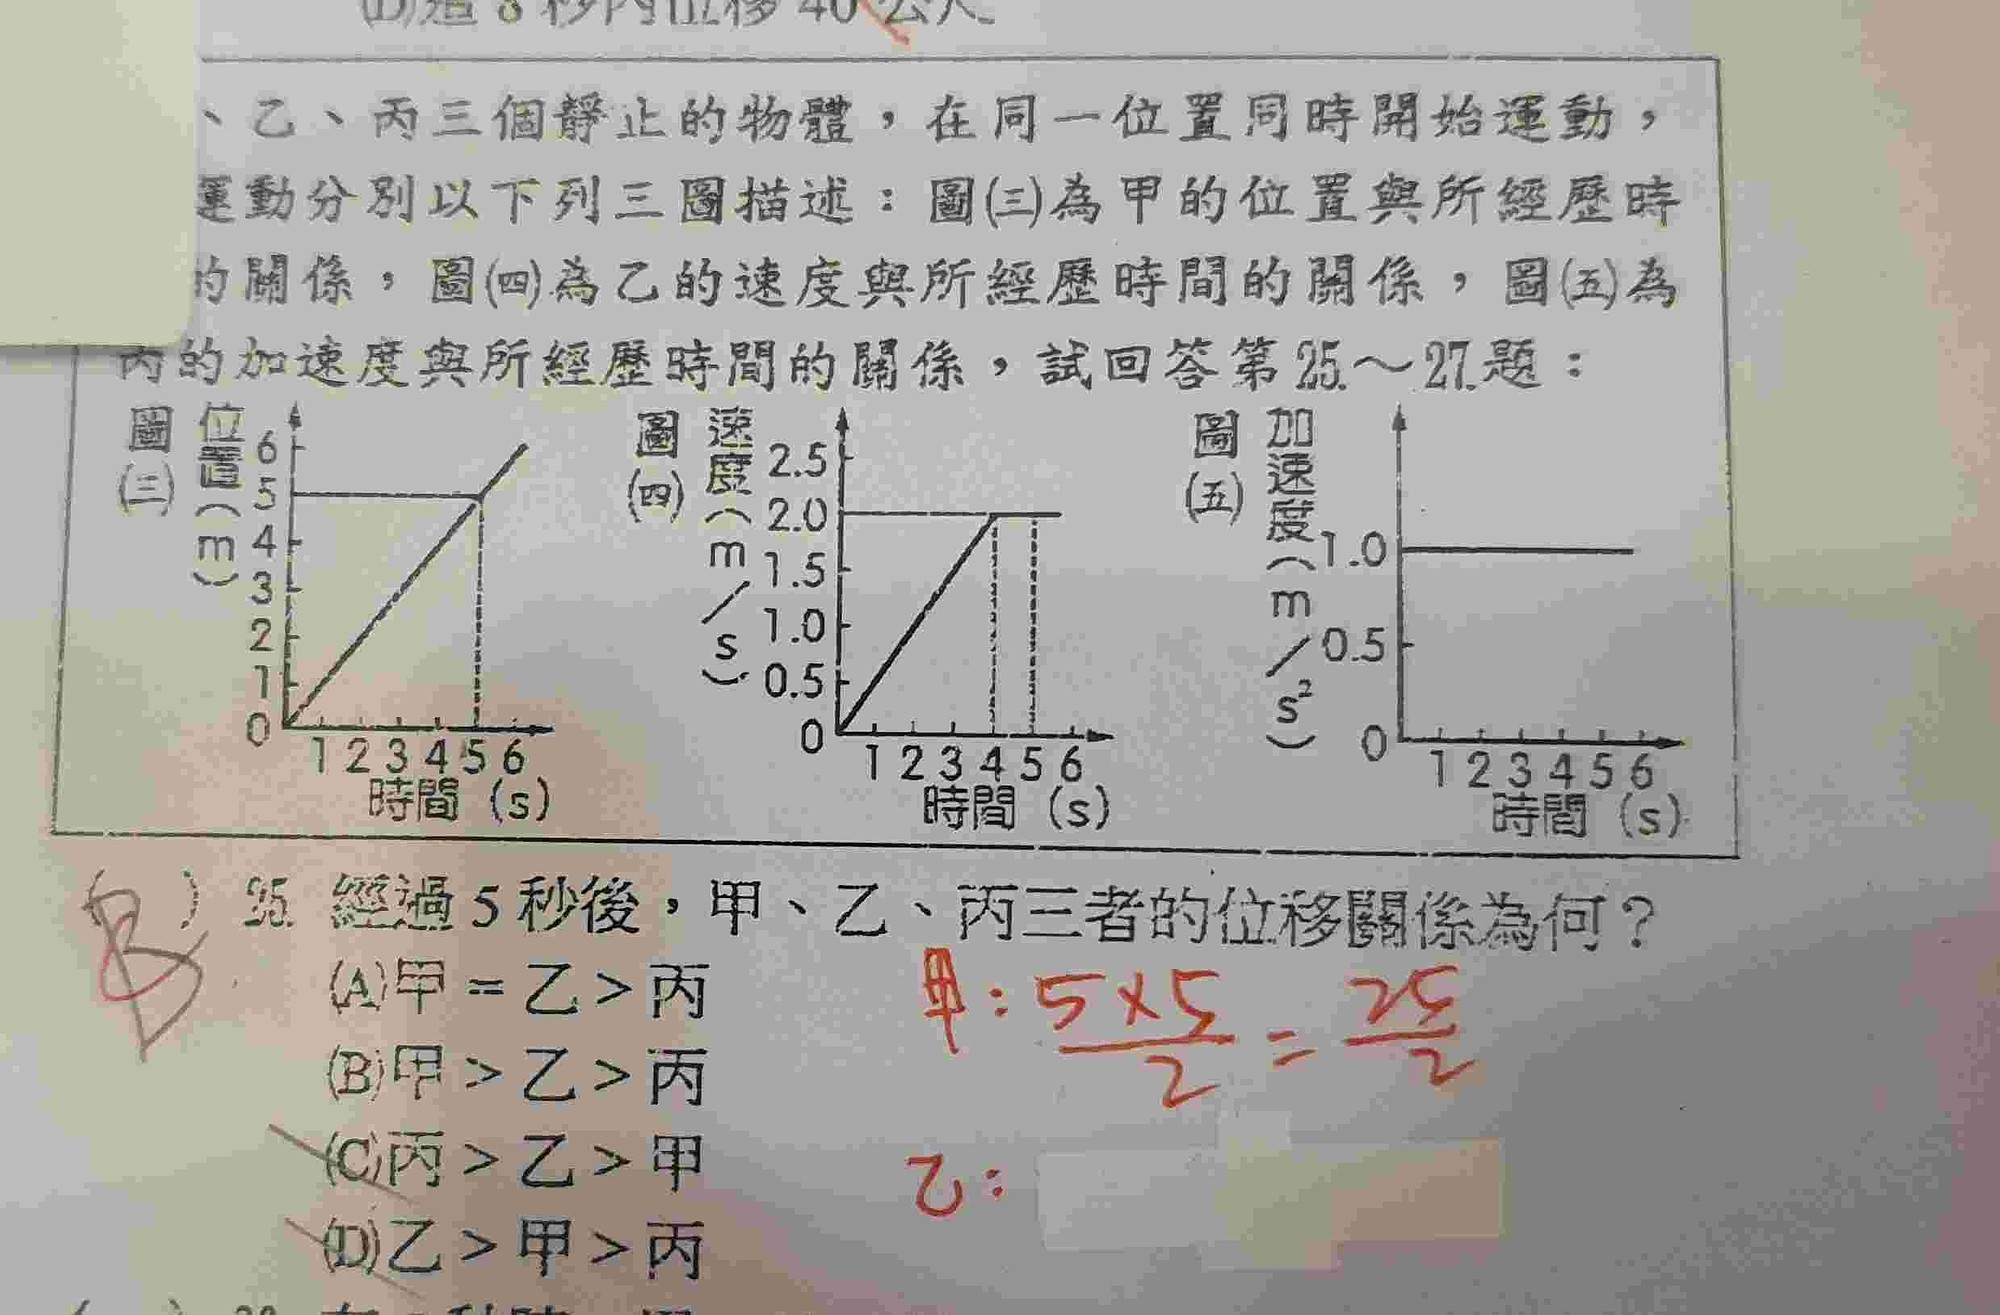 (D)這 8 秒內位移 40 公尺
、乙、丙三個靜止的物體，在同一位置同時開始運動，
運動分別以下列三圖描述：圖(三)為甲的位置與所經歷時
的關係，圖(四)為乙的速度與所經歷時間的關係，圖(五)為
丙的加速度與所經歷時間的關係，試回答第25.～27.題：
圖(三)
位置(m)
6
5
4
3
2
1
0
1 2 3 4 5 6
時間 (s)
圖(四)
速度(m/s)
2.5
2.0
1.5
1.0
0.5
0
1 2 3 4 5 6
時間 (s)
圖(五)
加速度(m/s²)
1.0
0.5
0
1 2 3 4 5 6
時間 (s)
B ) 25. 經過 5 秒後，甲、乙、丙三者的位移關係為何？
(A)甲 = 乙 > 丙
(B)甲 > 乙 > 丙
(C)丙 > 乙 > 甲
(D)乙 > 甲 > 丙
甲: 5×5/2 = 25/2
乙: